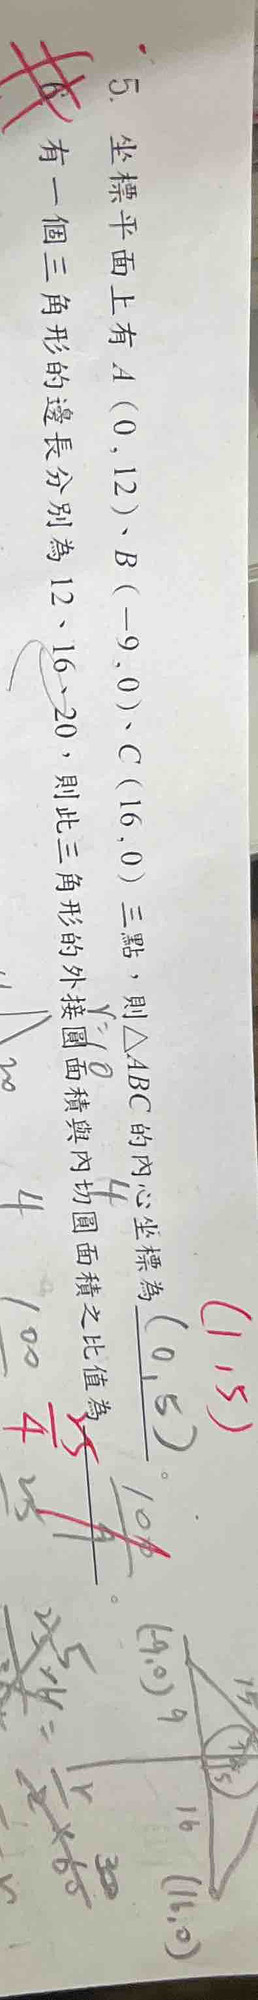 5. 坐標平面上有 A（0,12）、B（－9,0）、C（16,0）三點，則△ABC的內心坐標為(0,5)。
(1,5)
6. 有一個三角形的邊長分別為12、16、20，則此三角形的外接圓面積與內切圓面積之比值為
r=10
4
25
4
100
20
4
100
25
15
(-9,0) 9
16 (16,0)